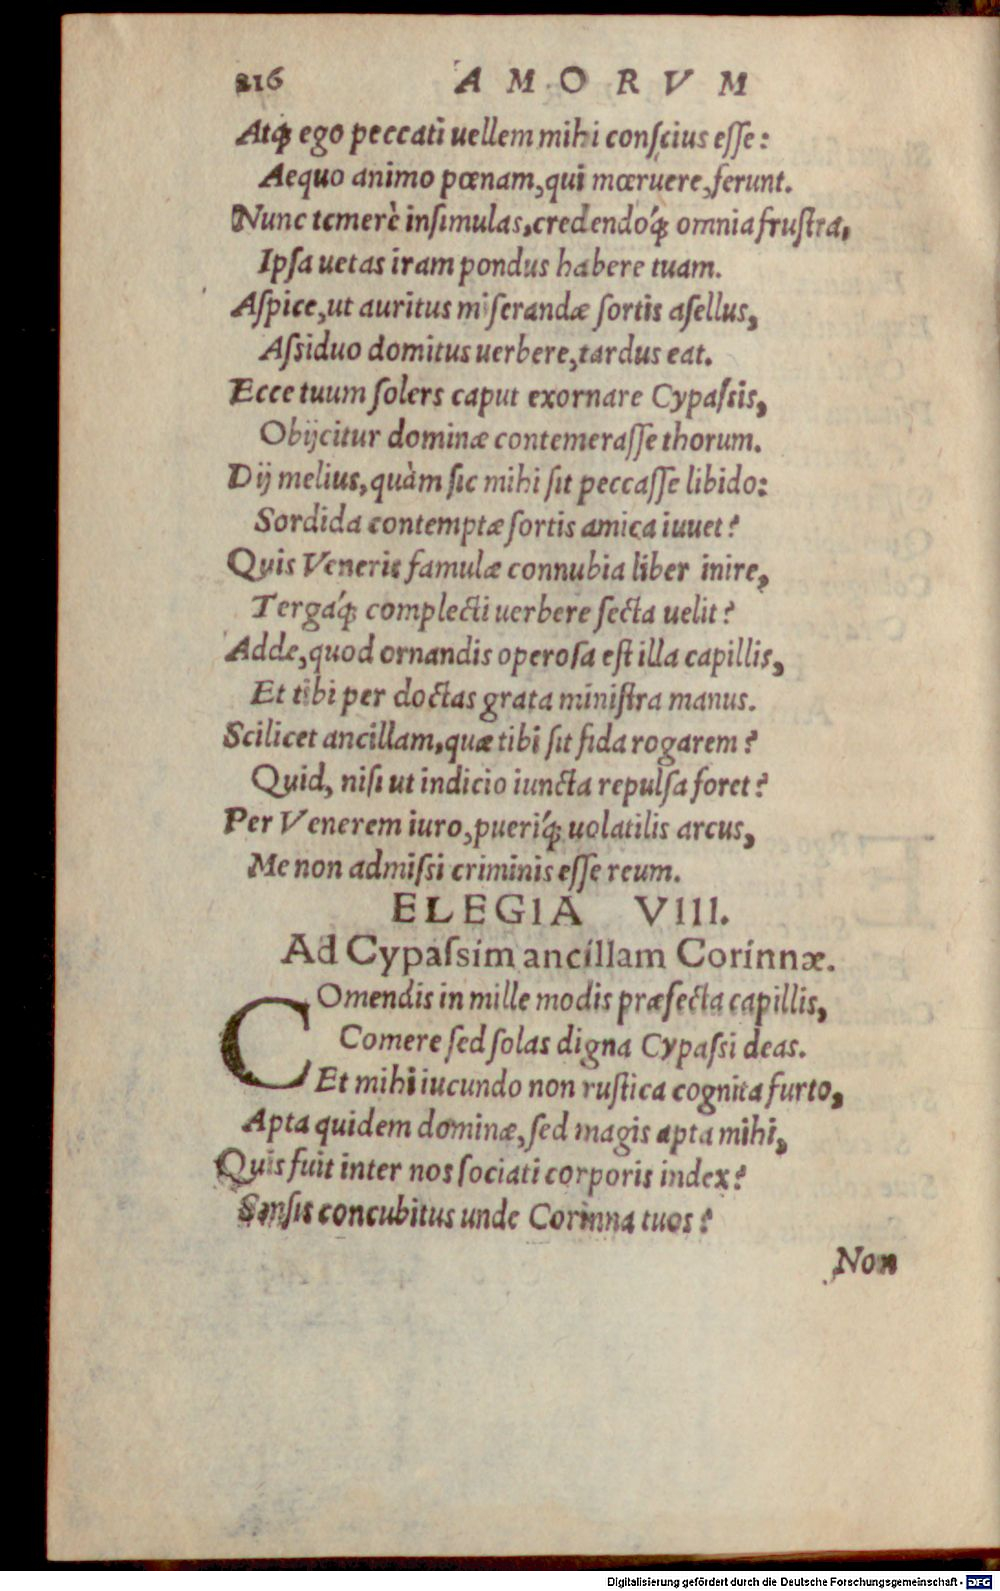 216 AMORVM
Atq́ꝫ ego peccati uellem mihi conſcius eſſe:
Aequo animo pœnam, qui mœruere, ferunt.
Nunc temerè inſimulas, credendóq́ꝫ omnia fruſtra,
Ipſa uetas iram pondus habere tuam.
Aſpice, ut auritus miſerandæ ſortis aſellus,
Aſſiduo domitus uerbere, tardus eat.
Ecce tuum ſolers caput exornare Cypaſsis,
Obijcitur dominæ contemeraſſe thorum.
Dij melius, quàm ſic mihi ſit peccaſſe libido:
Sordida contemptæ ſortis amica iuuet?
Quis Veneris famulæ connubia liber inire,
Tergáq́ꝫ complecti uerbere ſecta uelit?
Adde, quod ornandis operoſa eſt illa capillis,
Et tibi per doctas grata miniſtra manus.
Scilicet ancillam, quæ tibi ſit fida rogarem?
Quid, niſi ut indicio iuncta repulſa foret?
Per Venerem iuro, pueriq́ꝫ uolatilis arcus,
Me non admiſsi criminis eſſe reum.
ELEGIA VIII.
Ad Cypaſsim ancillam Corinnæ.
COmendis in mille modis præfecta capillis,
Comere ſed ſolas digna Cypaſsi deas.
Et mihi iucundo non ruſtica cognita furto,
Apta quidem dominæ, ſed magis apta mihi,
Quis fuit inter nos ſociati corporis index?
Senſit concubitus unde Corinna tuos?
Non
Digitalisierung gefördert durch die Deutsche Forschungsgemeinschaft - DFG